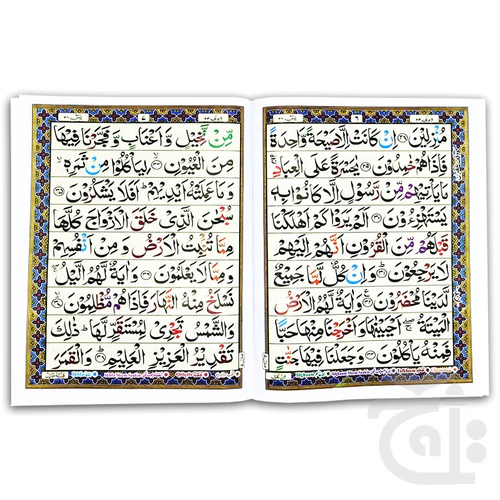 ٦
مُنْزِلِيْنَ ۝۲۸ اِنْ كَانَتْ اِلَّا صَيْحَةً وَّاحِدَةً
فَاِذَا هُمْ خٰمِدُوْنَ ۝۲۹ يٰحَسْرَةً عَلَى الْعِبَادِ
مَا يَاْتِيْهِمْ مِّنْ رَّسُوْلٍ اِلَّا كَانُوْا بِهٖ
يَسْتَهْزِءُوْنَ ۝۳۰ اَلَمْ يَرَوْا كَمْ اَهْلَكْنَا
قَبْلَهُمْ مِّنَ الْقُرُوْنِ اَنَّهُمْ اِلَيْهِمْ
لَا يَرْجِعُوْنَ ۝۳۱ وَاِنْ كُلٌّ لَّمَّا جَمِيْعٌ
لَّدَيْنَا مُحْضَرُوْنَ ۝۳۲ وَاٰيَةٌ لَّهُمُ الْاَرْضُ
الْمَيْتَةُ ۖ اَحْيَيْنٰهَا وَاَخْرَجْنَا مِنْهَا حَبًّا
فَمِنْهُ يَاْكُلُوْنَ ۝۳۳ وَجَعَلْنَا فِيْهَا جَنّٰتٍ
٧
مِّنْ نَّخِيْلٍ وَّاَعْنَابٍ وَّفَجَّرْنَا فِيْهَا
مِنَ الْعُيُوْنِ ۝۳۴ لِيَاْكُلُوْا مِنْ ثَمَرِهٖ
وَمَا عَمِلَتْهُ اَيْدِيْهِمْ ؕ اَفَلَا يَشْكُرُوْنَ ۝۳۵
سُبْحٰنَ الَّذِيْ خَلَقَ الْاَزْوَاجَ كُلَّهَا
مِمَّا تُنْۢبِتُ الْاَرْضُ وَمِنْ اَنْفُسِهِمْ
وَمِمَّا لَا يَعْلَمُوْنَ ۝۳۶ وَاٰيَةٌ لَّهُمُ الَّيْلُ
نَسْلَخُ مِنْهُ النَّهَارَ فَاِذَا هُمْ مُّظْلِمُوْنَ ۝۳۷
وَالشَّمْسُ تَجْرِيْ لِمُسْتَقَرٍّ لَّهَا ؕ ذٰلِكَ
تَقْدِيْرُ الْعَزِيْزِ الْعَلِيْمِ ۝۳۸ وَالْقَمَرَ